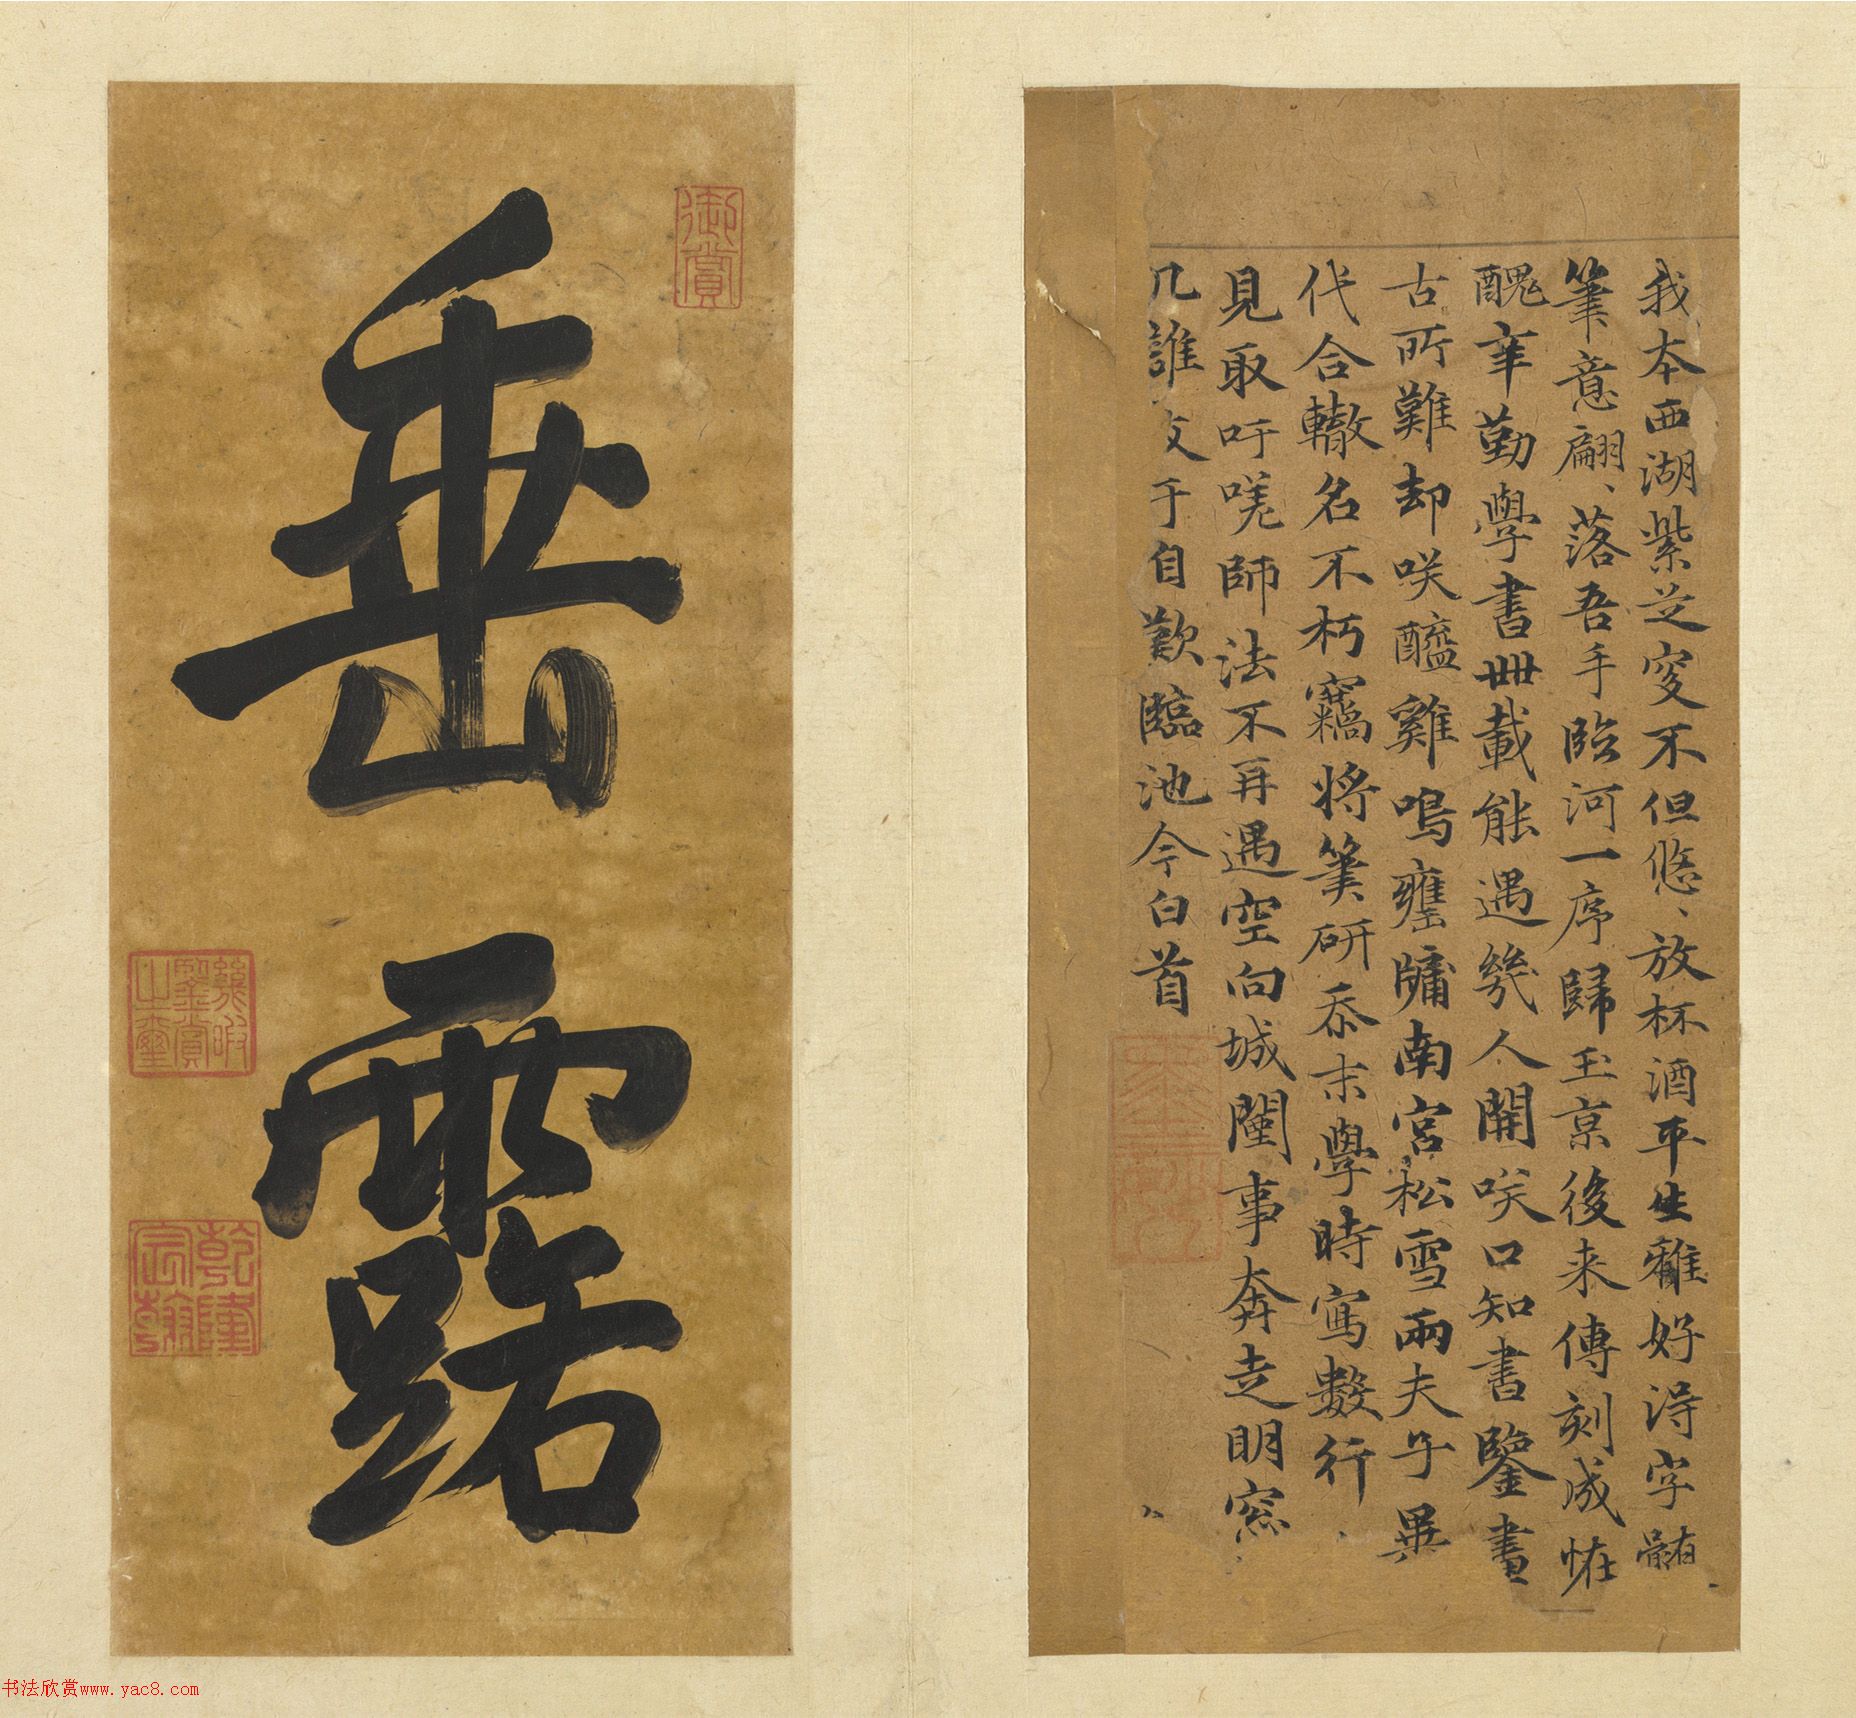 我本西湖紫芝叟不但悠、放杯酒平生雅好淂字髓
筆意翩、落吾手臨河一序歸玉京後来傳刻成恠
醜辛勤學書卌載能遇幾人開咲口知書鑒畫
古所難却咲醯雞鳴甕牖南宮松雪兩夫子異
代合轍名不朽竊將筆研忝末學時寫數行
見取吁嗟師法不再遇空向城闉事奔走明窓
几誰友于自歎臨池今白首
垂露
御賞
幾暇鑒賞之璽
乾隆宸翰
书法欣赏www.yac8.com